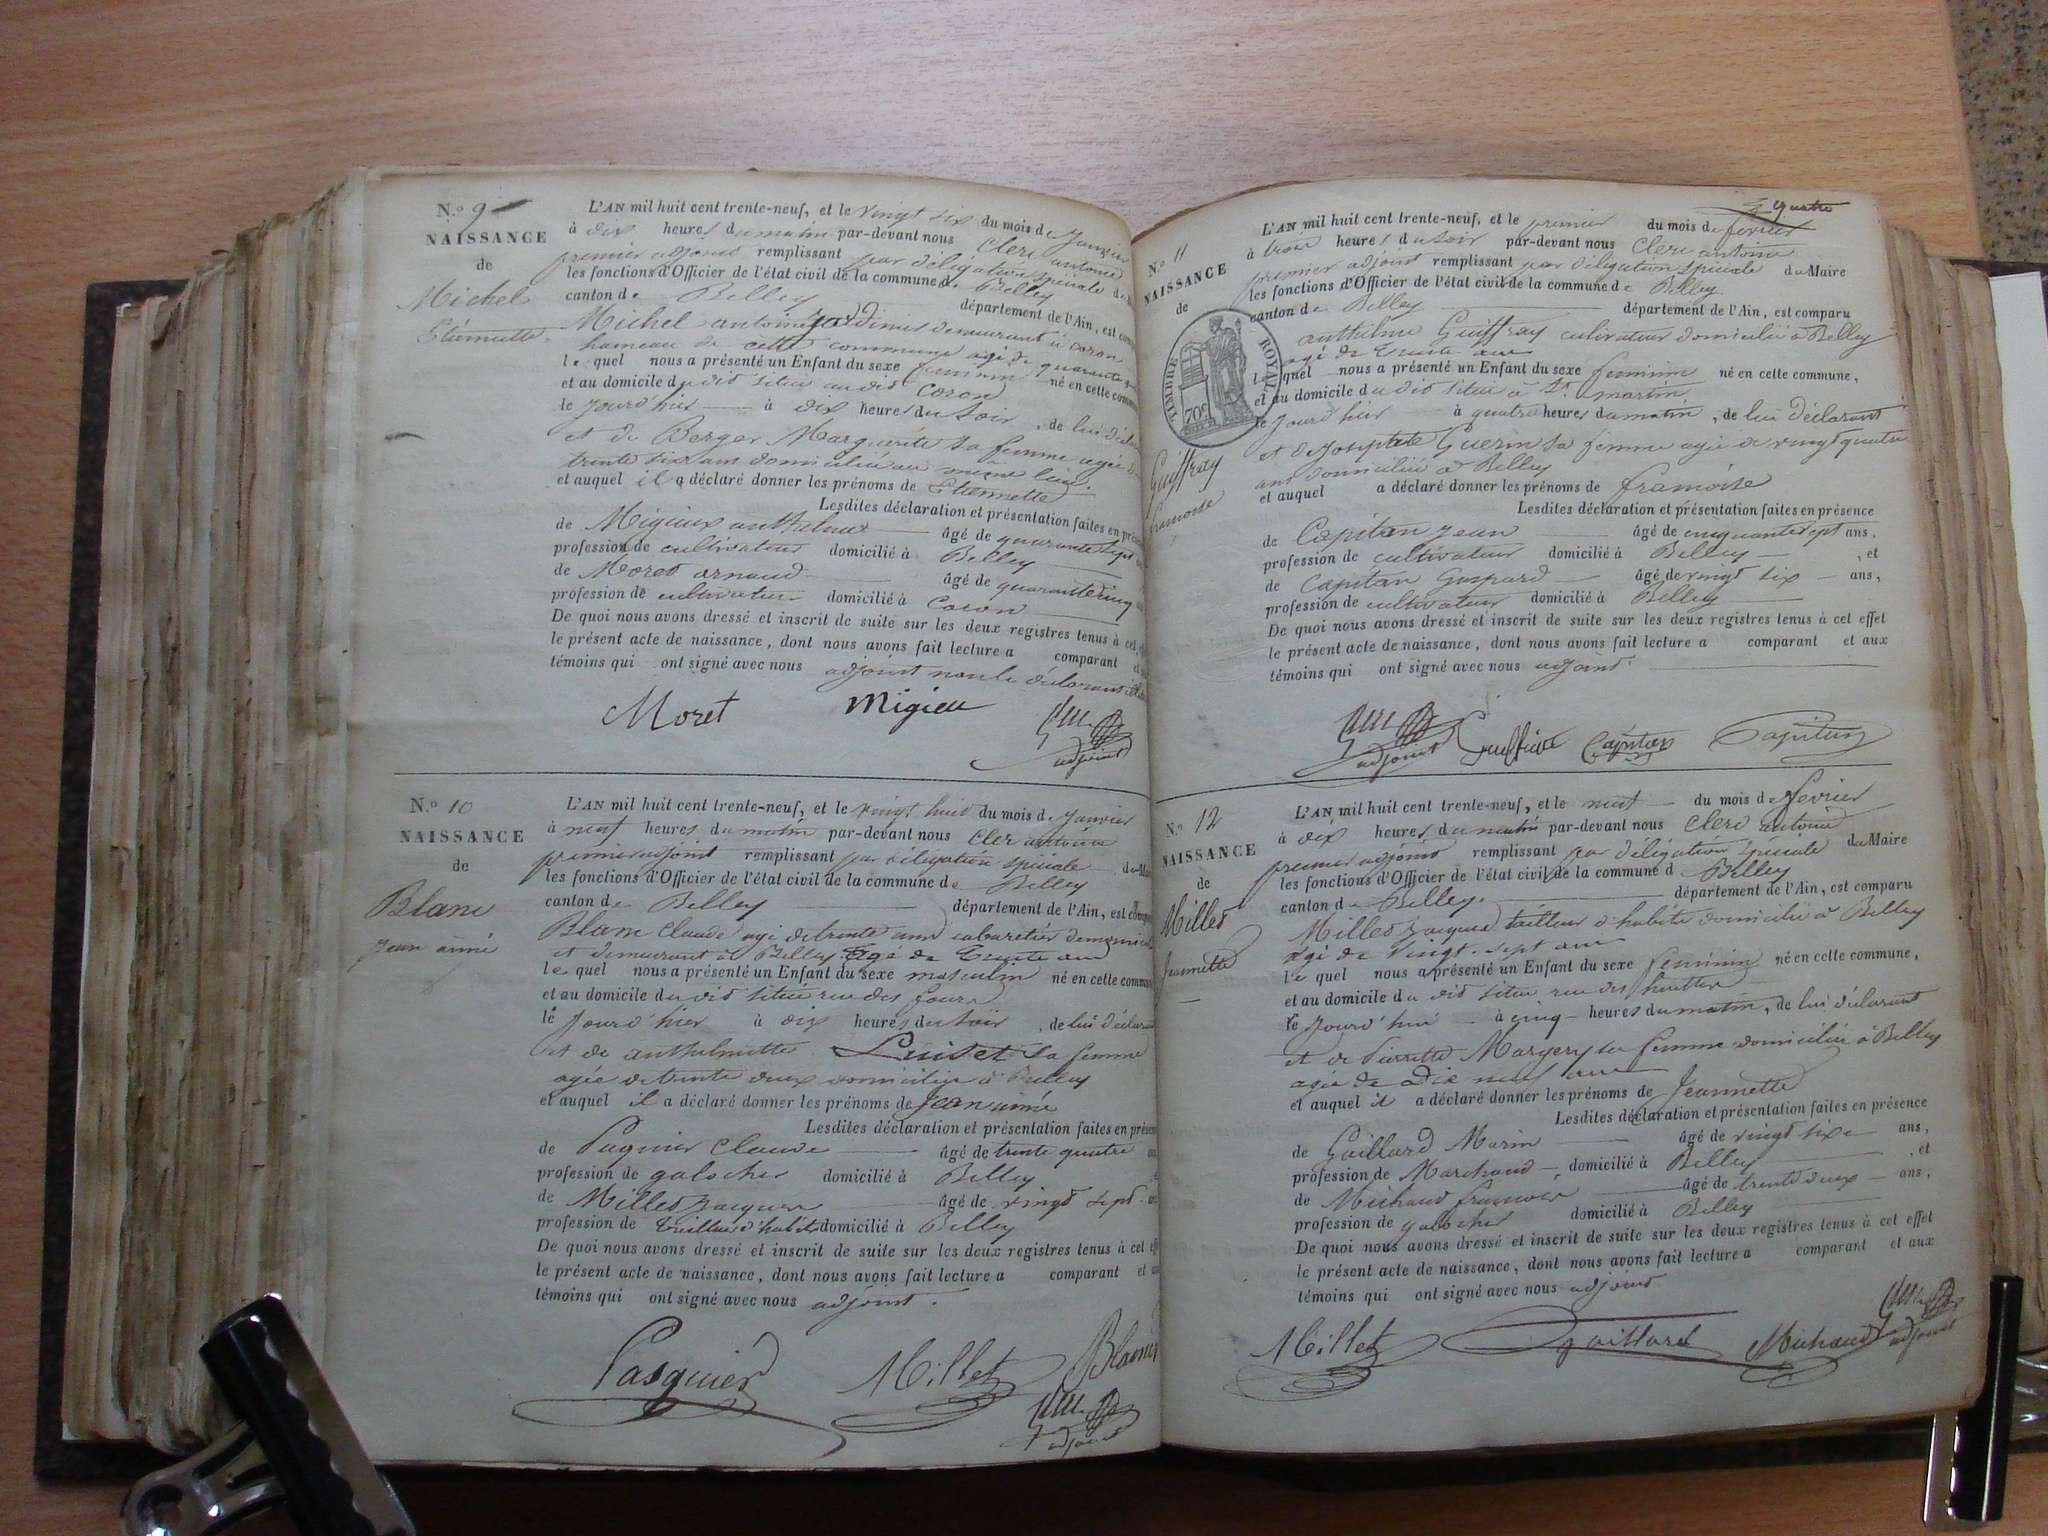 N.o 9
NAISSANCE
de
Michel
Etiennette
L'AN mil huit cent trente-neuf, et le vingt six du mois de Janvier
à dix heures du matin par-devant nous Clerc antoine
premier adjoint remplissant par délégation spéciale du
les fonctions d'Officier de l'état civil de la commune de Belley
canton de Belley département de l'Ain, est com
Michel antoine demeurant à coron
hameau de cette commune agé de quarante
le quel nous a présenté un Enfant du sexe feminin né en cette comm
et au domicile du dit situé au dit Coron
le jourd'hier à dix heures du soir, de lui décla
et de Berger Marguerite sa femme agée de
trente six ans domiciliée au même lieu.
et auquel il a déclaré donner les prénoms de Etiennette
Lesdites déclaration et présentation faites en pré
de Migieux anthelme âgé de quarante sept
profession de cultivateur domicilié à Belley
de Moret arnaud âgé de quarante cinq
profession de cultivateur domicilié à Coron
De quoi nous avons dressé et inscrit de suite sur les deux registres tenus à cet e
le présent acte de naissance, dont nous avons fait lecture a comparant et
témoins qui ont signé avec nous adjoint non le déclarant
Moret Migieu
adjoint
N.o 10
NAISSANCE
de
Blanc
jean aimé
L'AN mil huit cent trente-neuf, et le vingt huit du mois de Janvier
à neuf heures du matin par-devant nous Clerc antoine
premier adjoint remplissant par délégation spéciale du Mai
les fonctions d'Officier de l'état civil de la commune de Belley
canton de Belley département de l'Ain, est comp
Blanc Claude agé de trente ans cabaretier
et demeurant à Belley agé de trente ans
le quel nous a présenté un Enfant du sexe masculin né en cette comm
et au domicile du dit situé rue des fours
le jourd'hier à dix heures du soir, de lui déclarant
et de anthelmette Luiset sa femme
agée de trente deux domiciliée à Belley
et auquel il a déclaré donner les prénoms de Jean aimé
Lesdites déclaration et présentation faites en prése
de Paquier Claude âgé de trente quatre an
profession de galocher domicilié à Belley
de Millet jacques âgé de vingt sept
profession de tailleur d'habits domicilié à Belley
De quoi nous avons dressé et inscrit de suite sur les deux registres tenus à cet eff
le présent acte de naissance, dont nous avons fait lecture a comparant et au
témoins qui ont signé avec nous adjoint.
Pasquier Millet Blanc
adjoint
quatre
N.o 11
NAISSANCE
de
TIMBRE ROYAL
70c
Guiffray
francoise
L'AN mil huit cent trente-neuf, et le premier du mois de fevrier
à trois heures du soir par-devant nous Clerc antoine
premier adjoint remplissant par délégation spéciale du Maire
les fonctions d'Officier de l'état civil de la commune de Belley
canton de Belley département de l'Ain, est comparu
anthelme Guiffray cultivateur domicilié à Belley
agé de trente ans
le quel nous a présenté un Enfant du sexe feminin né en cette commune,
et au domicile du dit situé à St. martin
le jourd'hier à quatre heures du matin, de lui déclarant
et de josephte Guerin sa femme agée de vingt quatre
ans domiciliée à Belley
et auquel a déclaré donner les prénoms de francoise
Lesdites déclaration et présentation faites en présence
de Capitan jean âgé de cinquante sept ans,
profession de cultivateur domicilié à Belley, et
de Capitan Gaspard âgé de vingt six ans,
profession de cultivateur domicilié à Belley
De quoi nous avons dressé et inscrit de suite sur les deux registres tenus à cet effet
le présent acte de naissance, dont nous avons fait lecture a comparant et aux
témoins qui ont signé avec nous adjoint
adjoint Capitan Capitan
N.o 12
NAISSANCE
de
Millet
Jeannette
L'AN mil huit cent trente-neuf, et le neuf du mois de fevrier
à dix heures du matin par-devant nous Clerc antoine
premier adjoint remplissant par délégation spéciale du Maire
les fonctions d'Officier de l'état civil de la commune d Belley
canton de Belley. département de l'Ain, est comparu
Millet jacques tailleur d'habits domicilié à Belley
agé de vingt-sept ans
le quel nous a présenté un Enfant du sexe feminin né en cette commune,
et au domicile du dit situé rue des
le jourd'hui à cinq heures du matin, de lui déclarant
et de Pierrette Margery sa femme domiciliée à Belley
agée de dix neuf ans
et auquel il a déclaré donner les prénoms de Jeannette
Lesdites déclaration et présentation faites en présence
de Gaillard Marin âgé de vingt six ans,
profession de Marchand domicilié à Belley, et
de Michaud francois âgé de trente deux ans,
profession de galocher domicilié à Belley
De quoi nous avons dressé et inscrit de suite sur les deux registres tenus à cet effet
le présent acte de naissance, dont nous avons fait lecture a comparant et aux
témoins qui ont signé avec nous adjoint
Millet Gaillard Michaud adjoint